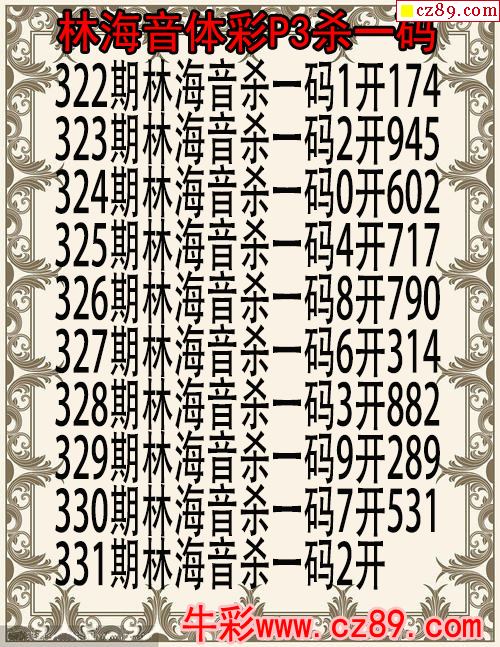 cz89.com
林海音体彩P3杀一码
322期林海音杀一码1开174
323期林海音杀一码2开945
324期林海音杀一码0开602
325期林海音杀一码4开717
326期林海音杀一码8开790
327期林海音杀一码6开314
328期林海音杀一码3开882
329期林海音杀一码9开289
330期林海音杀一码7开531
331期林海音杀一码2开
牛彩www.cz89.com